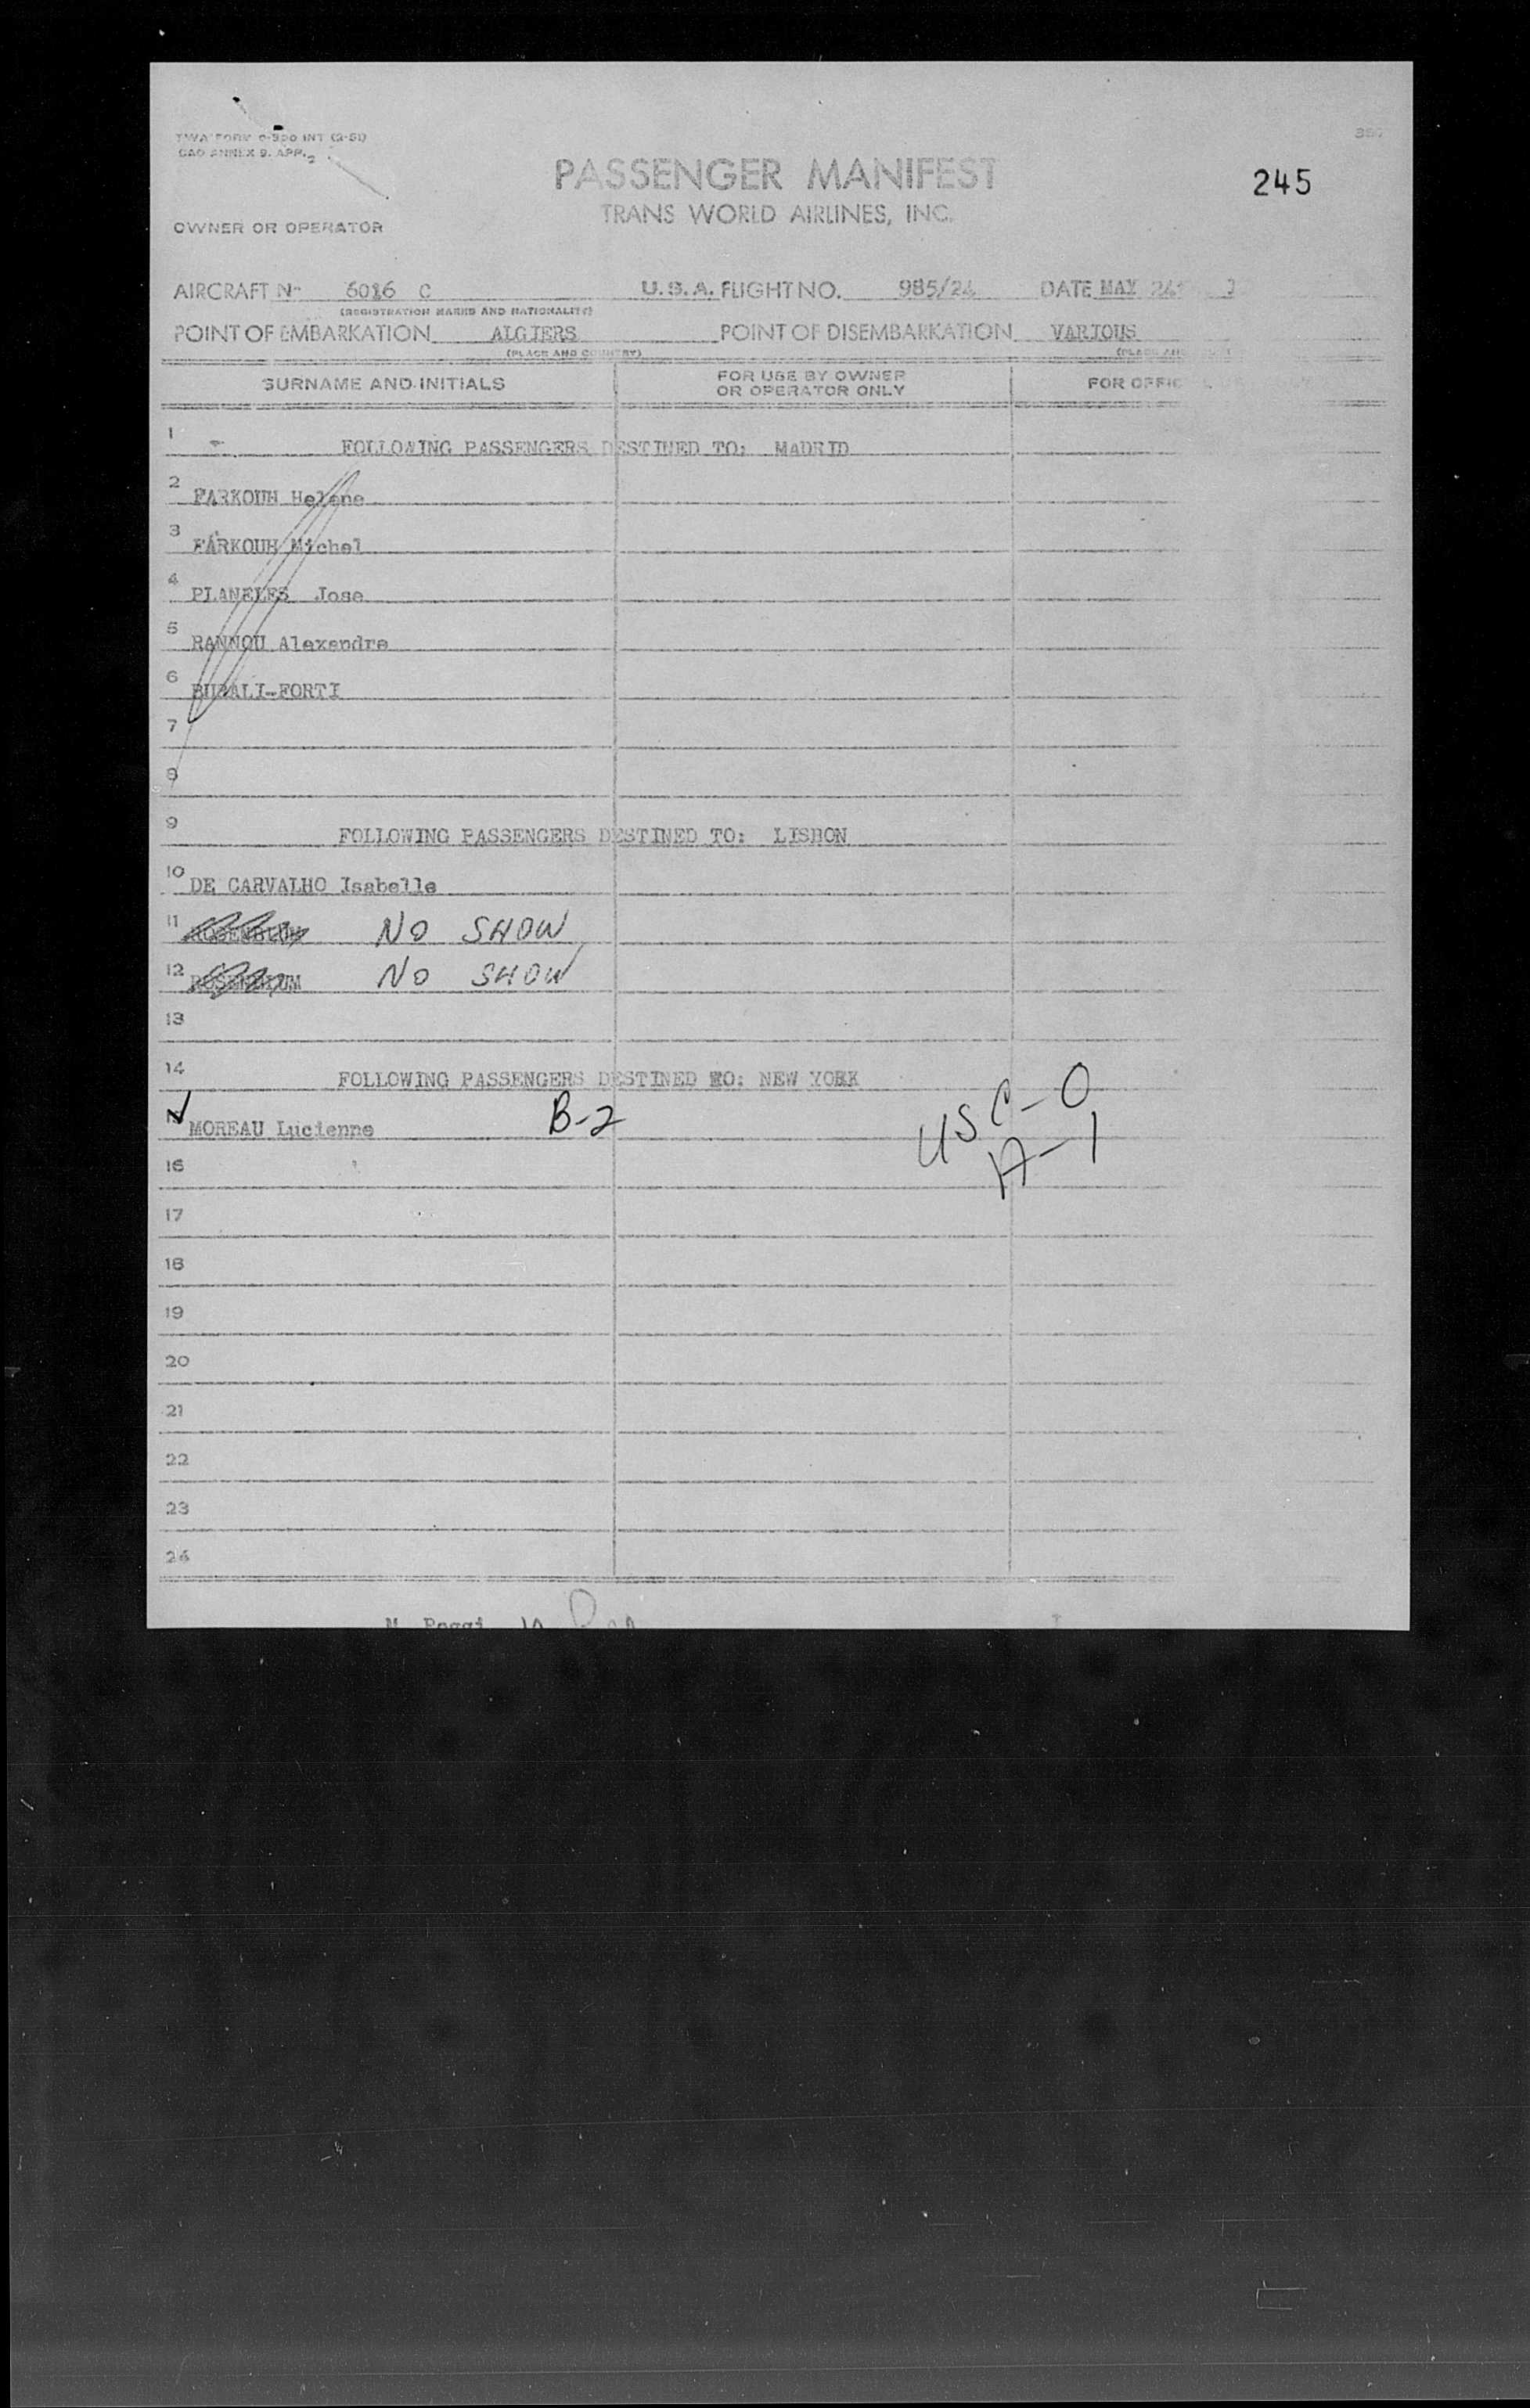 TWA FORM 0-900 INT (3-51)
CAO ANNEX 9. APP. 2
PASSENGER MANIFEST
245
TRANS WORLD AIRLINES, INC.
OWNER OR OPERATOR
AIRCRAFT Nº 6016 C U.S.A. FLIGHT NO. 985/24 DATE MAY 24
(REGISTRATION MARKS AND NATIONALITY)
POINT OF EMBARKATION ALGIERS POINT OF DISEMBARKATION VARIOUS
(PLACE AND COUNTRY) (PLACE AND
SURNAME AND INITIALS FOR USE BY OWNER OR OPERATOR ONLY FOR OFFIC
1 FOLLOWING PASSENGERS DESTINED TO: MADRID
2 FARKOUH Helene
3 FARKOUH Michel
4 PLANELES Jose
5 RANNOU Alexandre
6 BURALI-FORTI
7
8
9 FOLLOWING PASSENGERS DESTINED TO: LISBON
10 DE CARVALHO Isabelle
11 ROSENBLUM NO SHOW
12 ROSENBLUM NO SHOW
13
14 FOLLOWING PASSENGERS DESTINED TO: NEW YORK
USC-O
15 MOREAU Lucienne B-2
A-1
16
17
18
19
20
21
22
23
24
M. Poggi